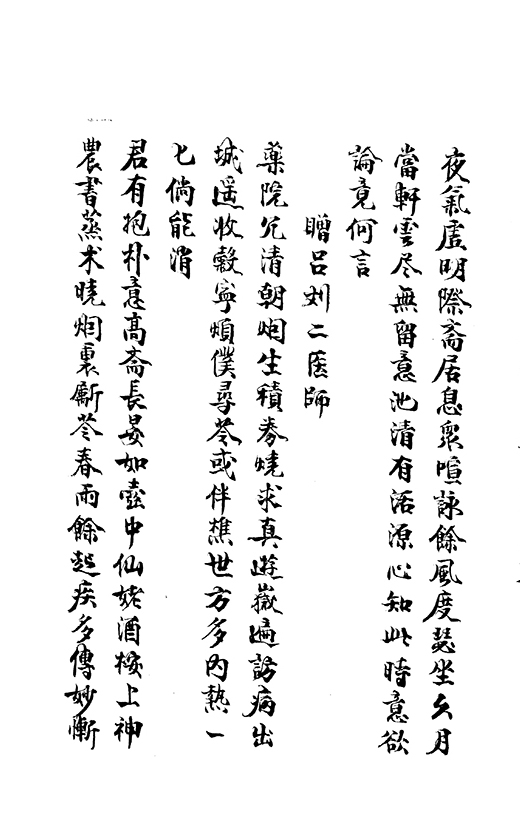 夜氣虛明際斋居息衆喧詠餘風度瑟坐久月
當軒雲尽無留意池清有活源心知此時意欲
論竟何言
贈呂刘二医師
藥院清朝烟生積券燒求真遊嶽遍訪病出
城遥收穀寧煩僕尋苓或伴樵世方多内熱一
匕倘能消
君有抱朴意高斋長晏如壺中仙姥酒桉上神
農書蒸术曉烟裏斸苓春雨餘起疾多傳妙慚